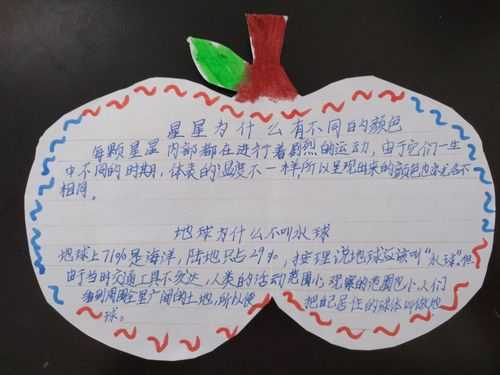 星星为什么有不同的颜色
每颗星星内部都在进行着剧烈的运动,由于它们一生
中不同的时期,体表的温度不一样所以呈现出来的颜色也亦各不
相同。
地球为什么不叫水球
地球上71%是海洋,陆地只占29%,按理说地球应该叫“水球”。但
由于当时交通工具不发达,人类的活动范围小观察的范围也小人们
看到周围全是广阔的土地,所以便 把自己居住的球体叫做地
球。